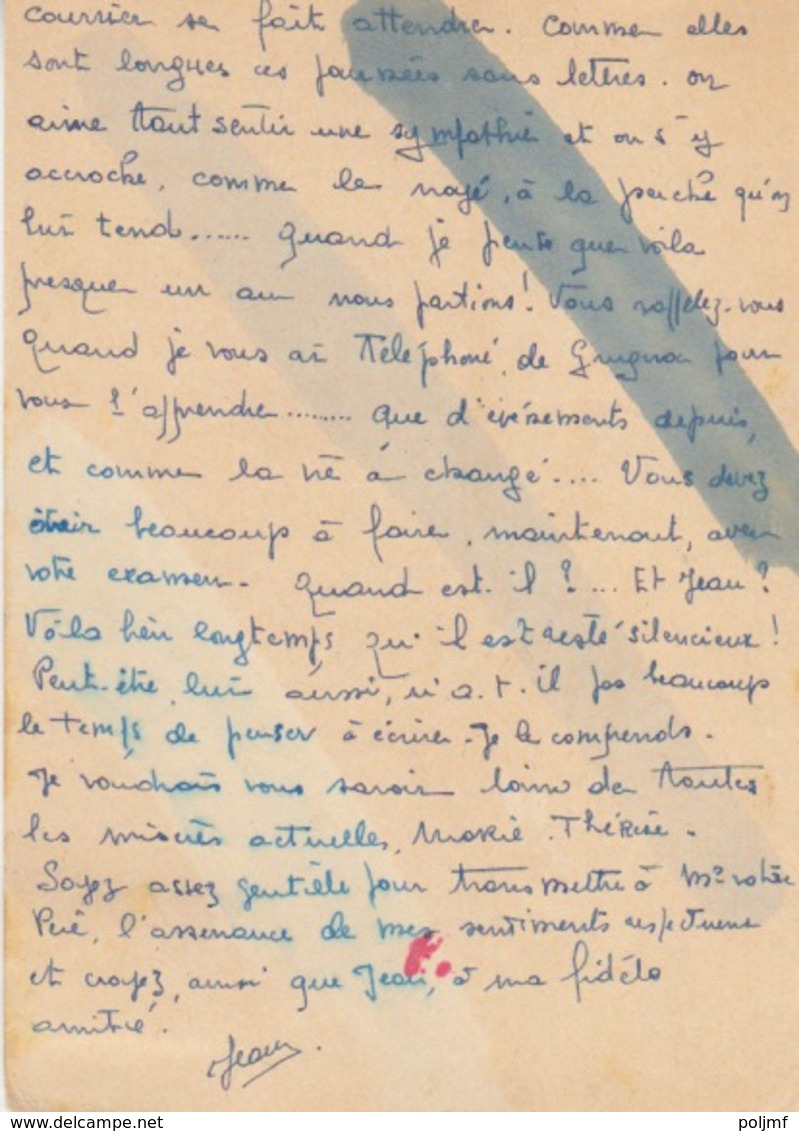 courrier se fait attendre. Comme elles
sont longues ces journées sans lettres. on
aime tant sentir une sympathie et on s'y
accroche, comme le noyé, à la perche qu'on
lui tend...... Quand je pense que voilà
presque un an nous partions! Vous rappelez-vous
Quand je vous ai Téléphoné de Grignon pour
vous l'apprendre......... que d'évènements depuis,
et comme la vie à changé.... Vous devez
avoir beaucoup à faire, maintenant, avec
votre examen. Quand est-il?... Et Jean?
Voilà bien longtemps qu'il est resté silencieux!
Peut-être, lui aussi, n'a-t-il pas beaucoup
le temps de penser à écrire. Je le comprends.
Je voudrais vous savoir loin de toutes
les misères actuelles, Marie-Thérèse.
Soyez assez gentille pour transmettre à Mr votre
Père, l'assurance de mes sentiments respectueux
et croyez, ainsi que Jean, à ma fidèle
amitié.
Jean.
www.delcampe.net
poljmf